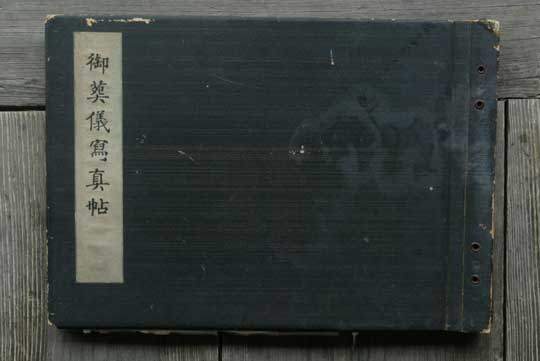 御葬儀寫真帖